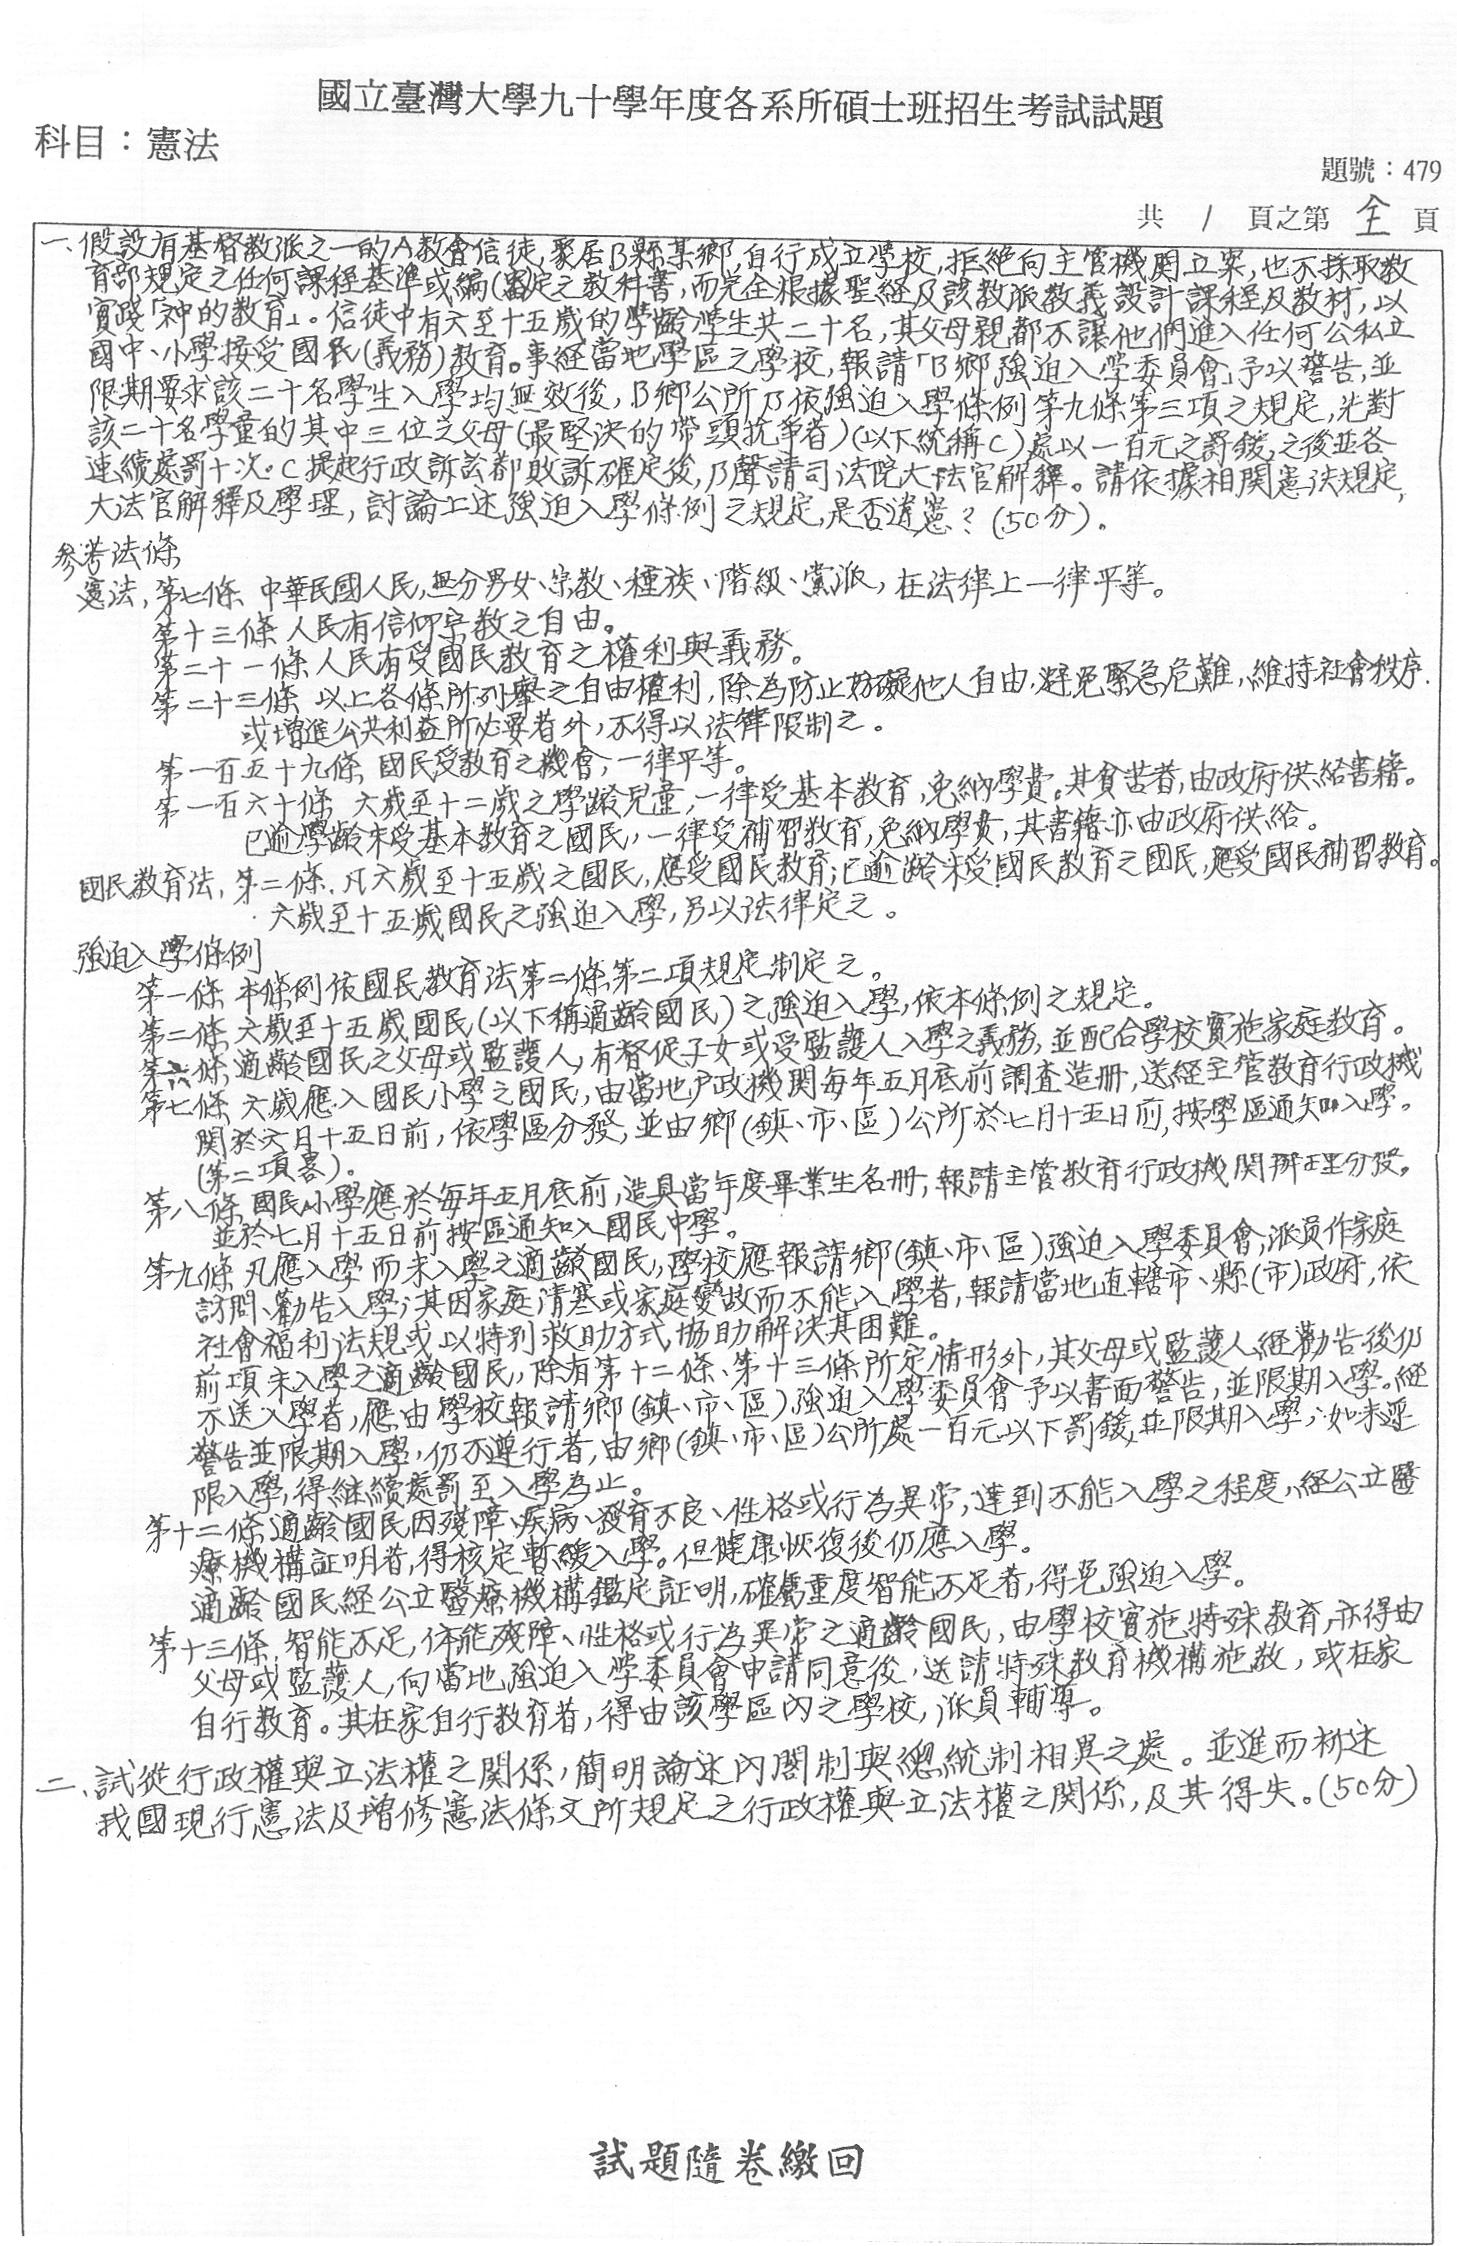 國立臺灣大學九十學年度各系所碩士班招生考試試題
科目：憲法
題號：479
共 1 頁之第 全 頁
一、假設有基督教派之一的A教會信徒，聚居B縣某鄉，自行成立學校，拒絕向主管機關立案，也不採取教
育部規定之任何課程基準或編(審)定之教科書，而完全根據聖經及該教派教義設計課程及教材，以
實踐「神的教育」。信徒中有六至十五歲的學齡學生共二十名，其父母親都不讓他們進入任何公私立
國中、小學接受國民(義務)教育。事經當地學區之學校，報請「B鄉強迫入學委員會」予以警告，並
限期要求該二十名學生入學均無效後，B鄉公所乃依強迫入學條例第九條第三項之規定，先對
該二十名學童的其中三位之父母(最堅決的帶頭抗爭者)(以下統稱C)處以一百元之罰鍰，之後並各
連續處罰十次。C提起行政訴訟都敗訴確定後，乃聲請司法院大法官解釋。請依據相關憲法規定，
大法官解釋及學理，討論上述強迫入學條例之規定，是否違憲？(50分)。
參考法條
憲法，第七條 中華民國人民，無分男女、宗教、種族、階級、黨派，在法律上一律平等。
第十三條 人民有信仰宗教之自由。
第二十一條 人民有受國民教育之權利與義務。
第二十三條 以上各條所列舉之自由權利，除為防止妨礙他人自由，避免緊急危難，維持社會秩序，
或增進公共利益所必要者外，不得以法律限制之。
第一百五十九條 國民受教育之機會，一律平等。
第一百六十條 六歲至十二歲之學齡兒童，一律受基本教育，免納學費。其貧苦者，由政府供給書籍。
已逾學齡未受基本教育之國民，一律受補習教育，免納學費，其書籍亦由政府供給。
國民教育法，第二條 凡六歲至十五歲之國民，應受國民教育；已逾齡未受國民教育之國民，應受國民補習教育。
六歲至十五歲國民之強迫入學，另以法律定之。
強迫入學條例
第一條 本條例依國民教育法第二條第二項規定制定之。
第二條 六歲至十五歲國民(以下稱適齡國民)之強迫入學，依本條例之規定。
第六條 適齡國民之父母或監護人，有督促子女或受監護人入學之義務，並配合學校實施家庭教育。
第七條 六歲應入國民小學之國民，由當地戶政機關每年五月底前調查造冊，送經主管教育行政機
關於六月十五日前，依學區分發，並由鄉(鎮、市、區)公所於七月十五日前，按學區通知入學。
(第二項畧)。
第八條 國民小學應於每年五月底前，造具當年度畢業生名冊，報請主管教育行政機關辦理分發，
並於七月十五日前按區通知入國民中學。
第九條 凡應入學而未入學之適齡國民，學校應報請鄉(鎮、市、區)強迫入學委員會，派員作家庭
訪問、勸告入學；其因家庭清寒或家庭變故而不能入學者，報請當地直轄市、縣(市)政府，依
社會福利法規或以特別救助方式協助解決其困難。
前項未入學之適齡國民，除有第十二條、第十三條所定情形外，其父母或監護人經勸告後仍
不送入學者，應由學校報請鄉(鎮、市、區)強迫入學委員會予以書面警告，並限期入學。經
警告並限期入學，仍不遵行者，由鄉(鎮、市、區)公所處一百元以下罰鍰，並限期入學；如未遵
限入學，得繼續處罰至入學為止。
第十二條 適齡國民因殘障、疾病、發育不良、性格或行為異常，達到不能入學之程度，經公立醫
療機構証明者，得核定暫緩入學。但健康恢復後仍應入學。
適齡國民經公立醫療機構鑑定証明，確屬重度智能不足者，得免強迫入學。
第十三條 智能不足，体能殘障、性格或行為異常之適齡國民，由學校實施特殊教育，亦得由
父母或監護人，向當地強迫入學委員會申請同意後，送請特殊教育機構施教，或在家
自行教育。其在家自行教育者，得由該學區內之學校，派員輔導。
二、試從行政權與立法權之關係，簡明論述內閣制與總統制相異之處。並進而析述
我國現行憲法及增修憲法條文所規定之行政權與立法權之關係，及其得失。(50分)
試題隨卷繳回